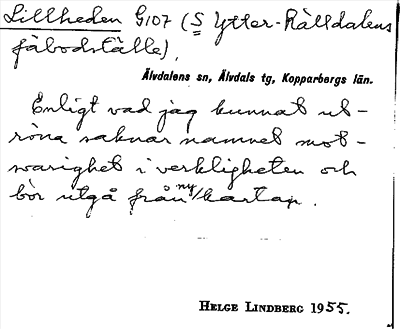 Lillheden G107 (S Ytter-Rålldalens
fäbodställe),
Älvdalens sn, Älvdals tg, Kopparbergs län.
Enligt vad jag kunnat ut-
röna saknar namnet mot-
svarighet i verkligheten och
bör utgå från ny kartan.
HELGE LINDBERG 1955.